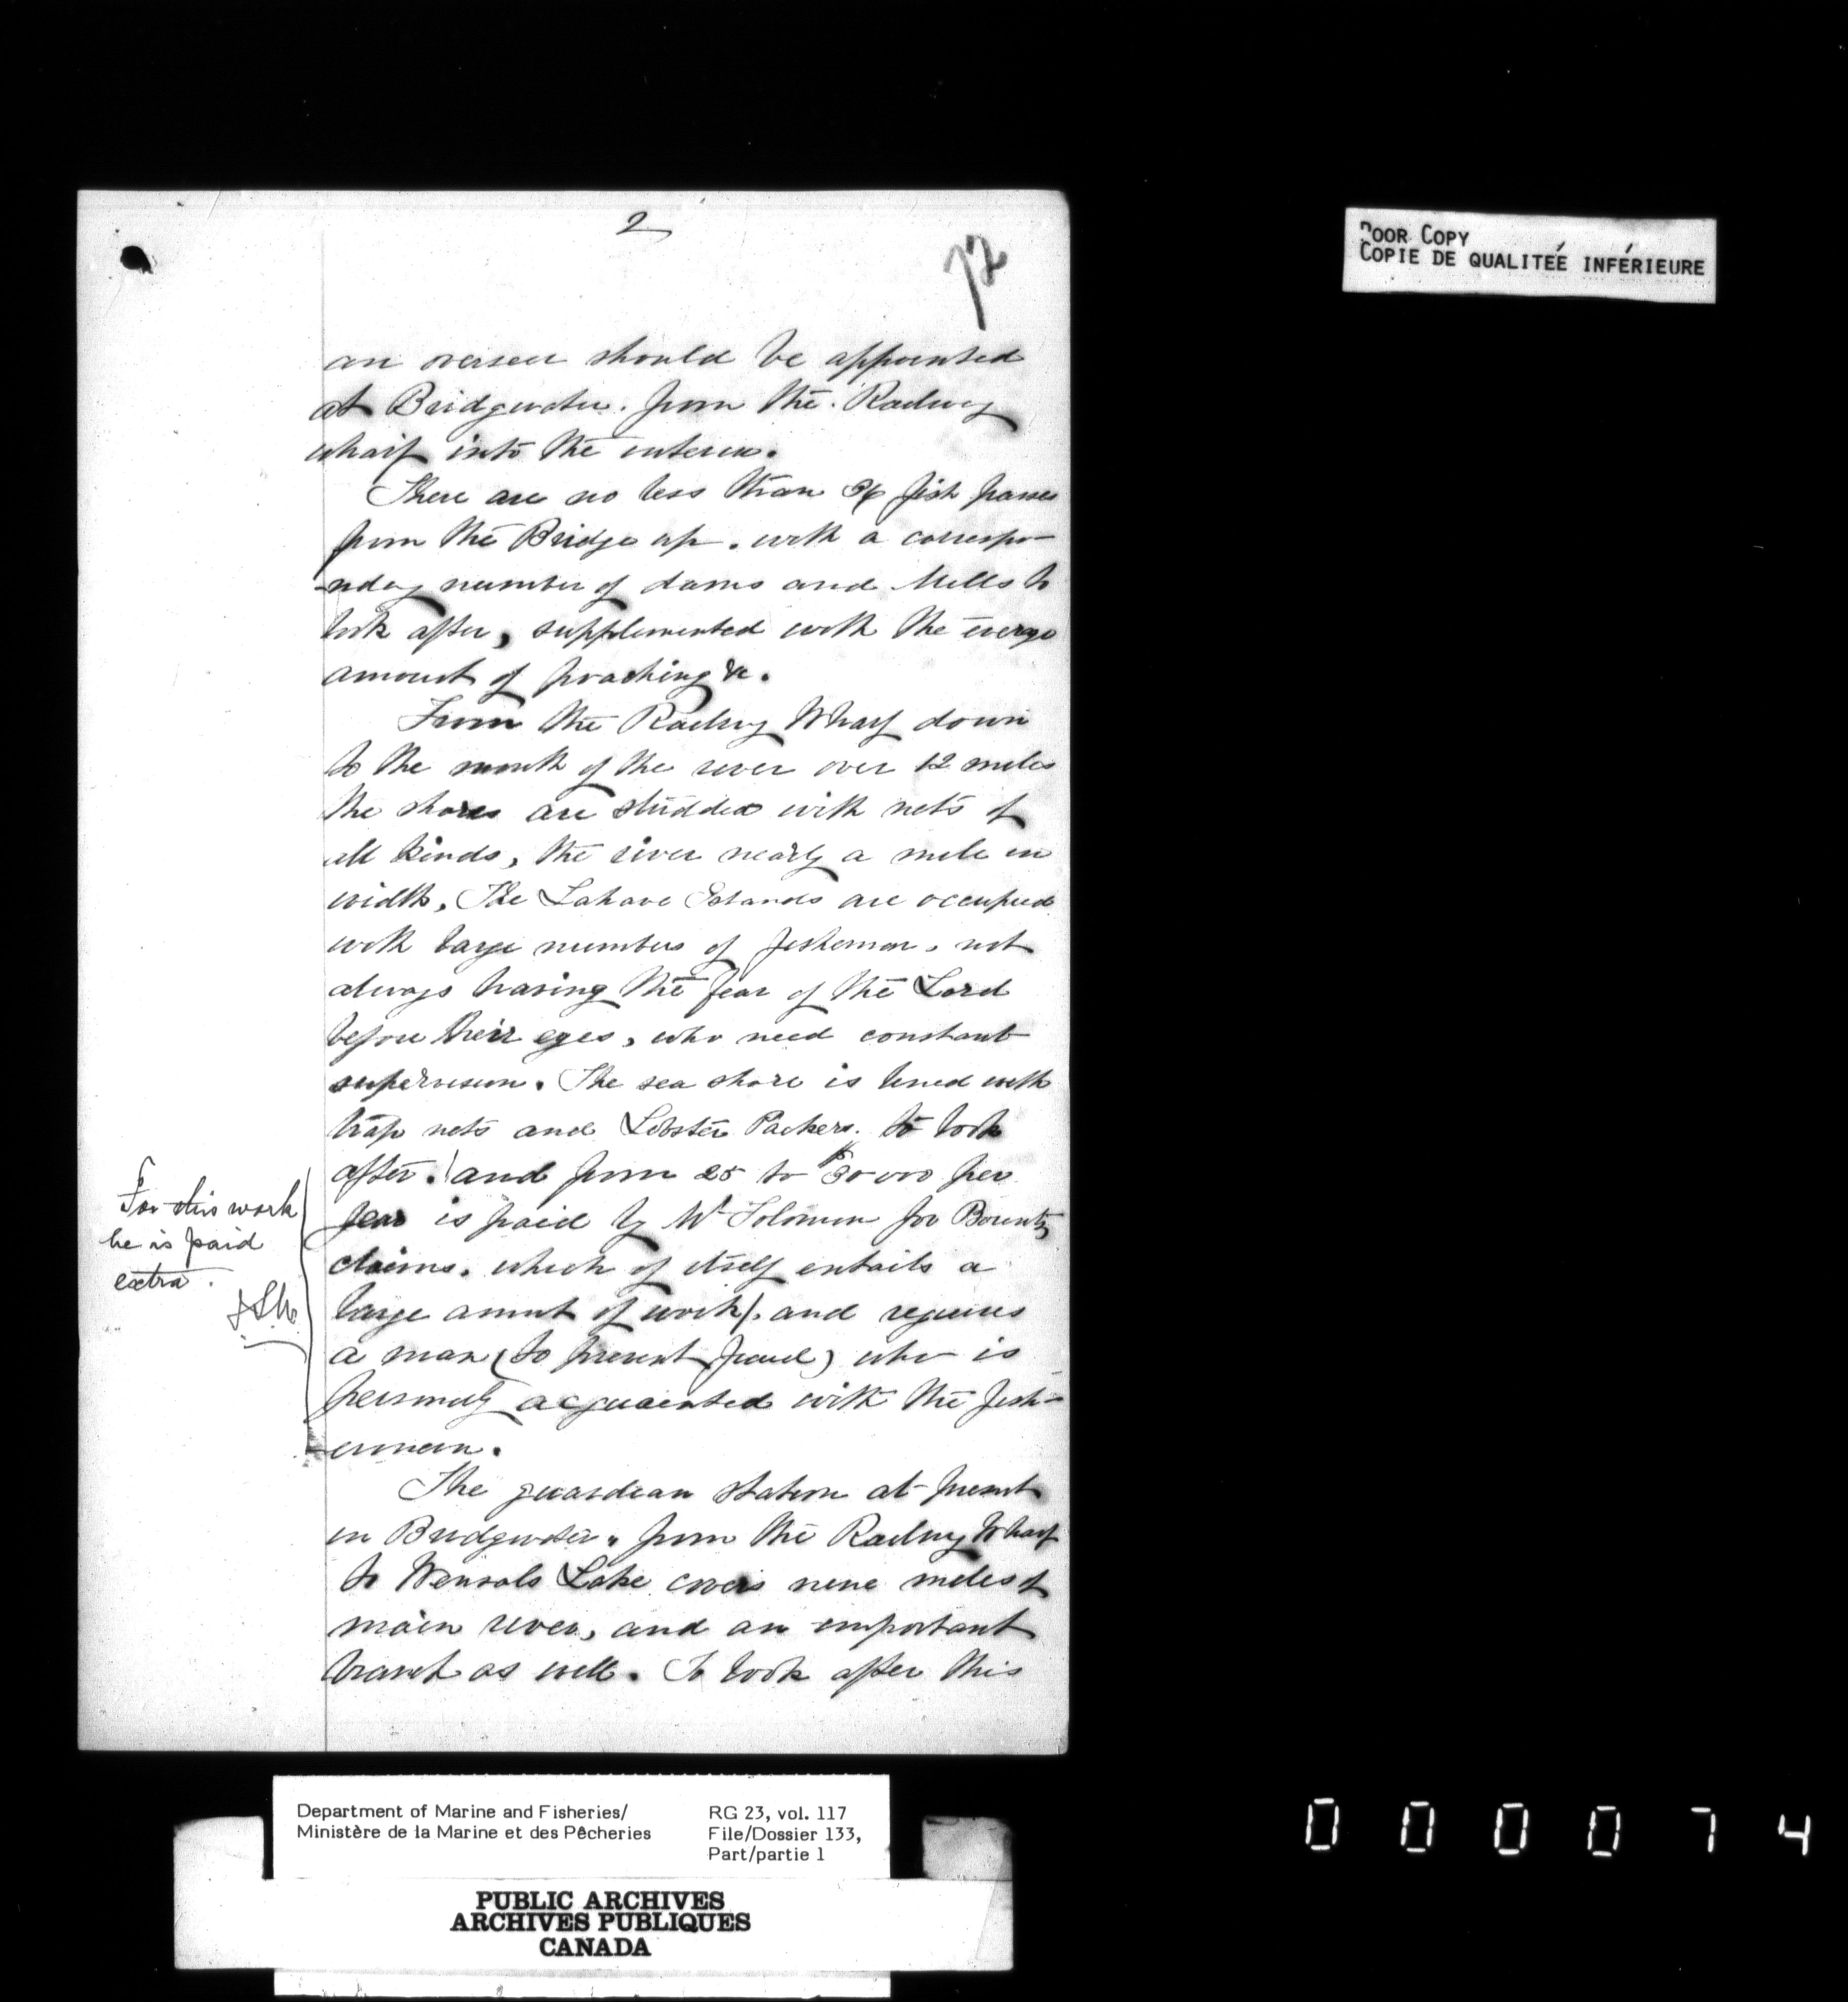 2
72
POOR COPY
COPIE DE QUALITEÉ INFÉRIEURE
an overseer should be appointed
at Bridgewater. from the Railway
wharf into the interior.
There are no less than 36 fish passes
from the Bridge up. with a correspo-
nding number of dams and Mills to
look after, supplemented with the
amount of poaching &c.
From the Railway Wharf down
to the mouth of the river over 12 miles
the shores are studded with nets of
all kinds, the river nearly a mile in
width, The Lahave Islands are occupied
with large numbers of fishermen, not
always having the fear of the Lord
before their eyes, who need constant
supervision. The sea shore is lined with
trap nets and Lobster Packers. to look
after. (and from 25 to $30000 per
year is paid by Mr Solomon for Bounty
claims. which of itself entails a
large amnt of work). and requires
a man (to prevent fraud) who is
personally acquainted with the fish-
ermen.
For this work
he is paid
extra.
The guardian station at present
in Bridgewater, from the Railway Wharf
to Wensals Lake covers nine miles of
main river, and an important
branch as well. To look after this
Department of Marine and Fisheries/
Ministère de la Marine et des Pêcheries
RG 23, vol. 117
File/Dossier 133,
Part/partie 1
PUBLIC ARCHIVES
ARCHIVES PUBLIQUES
CANADA
000074